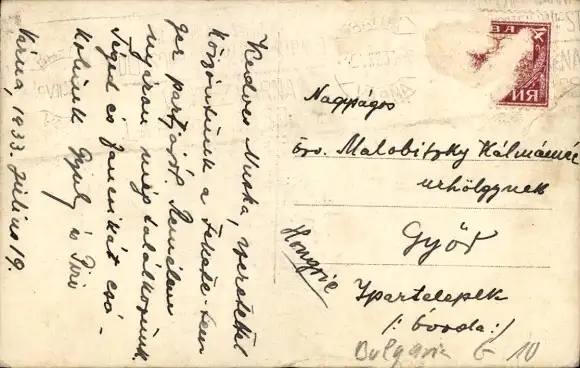 Kedves Muska, szeretettel
köszöntünk a Fekete-ten-
ger partjáról. Remélem
nyáron még találkozunk.
Téged és Jancsikát csó-
kolunk Gyul és Piri
Várna, 1933. Július 19.
Nagyságos
özv. Malobitzky Kálmánné
urhölgynek
Győr
Hongrie
Ipartelepek
/: óvoda :/
Bulgaria G 10